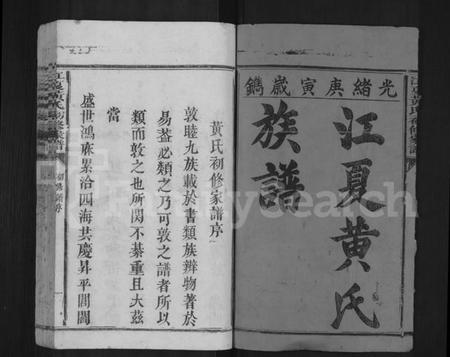 光緒庚寅歲鐫
江夏黃氏
族譜
黃氏初修家譜序
敦睦九族載於書類族辨物著於
易葢必類之乃可敦之譜者所以
類而敦之也所関不綦重且大茲
當
盛世鴻庥累洽四海共慶昇平閭閻
FamilySearch